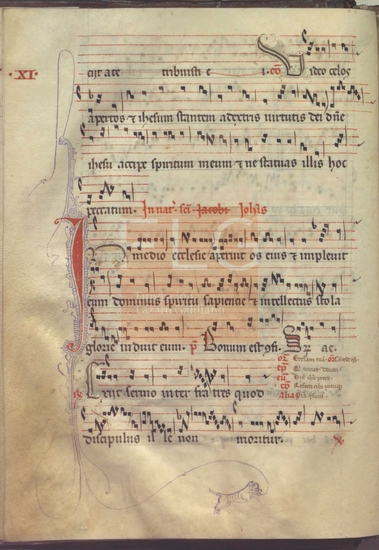 ·XI·
tribuisti e i. cō Video celos
apertos & ihesum stantem adextris virtutis dei dn̄e
ihesu accipe spiritum meum & ne statuas illis hoc
peccatum. In nat̄. sc̄i Iacobi Joh̄is
In medio ecclesie aperuit os eius & impleuit
eum dominus spiritu sapiencie & intellectus stola
glorie induit eum. p̄ Bonum est
Exiit sermo inter fratres quod
discipulus il le non moritur.